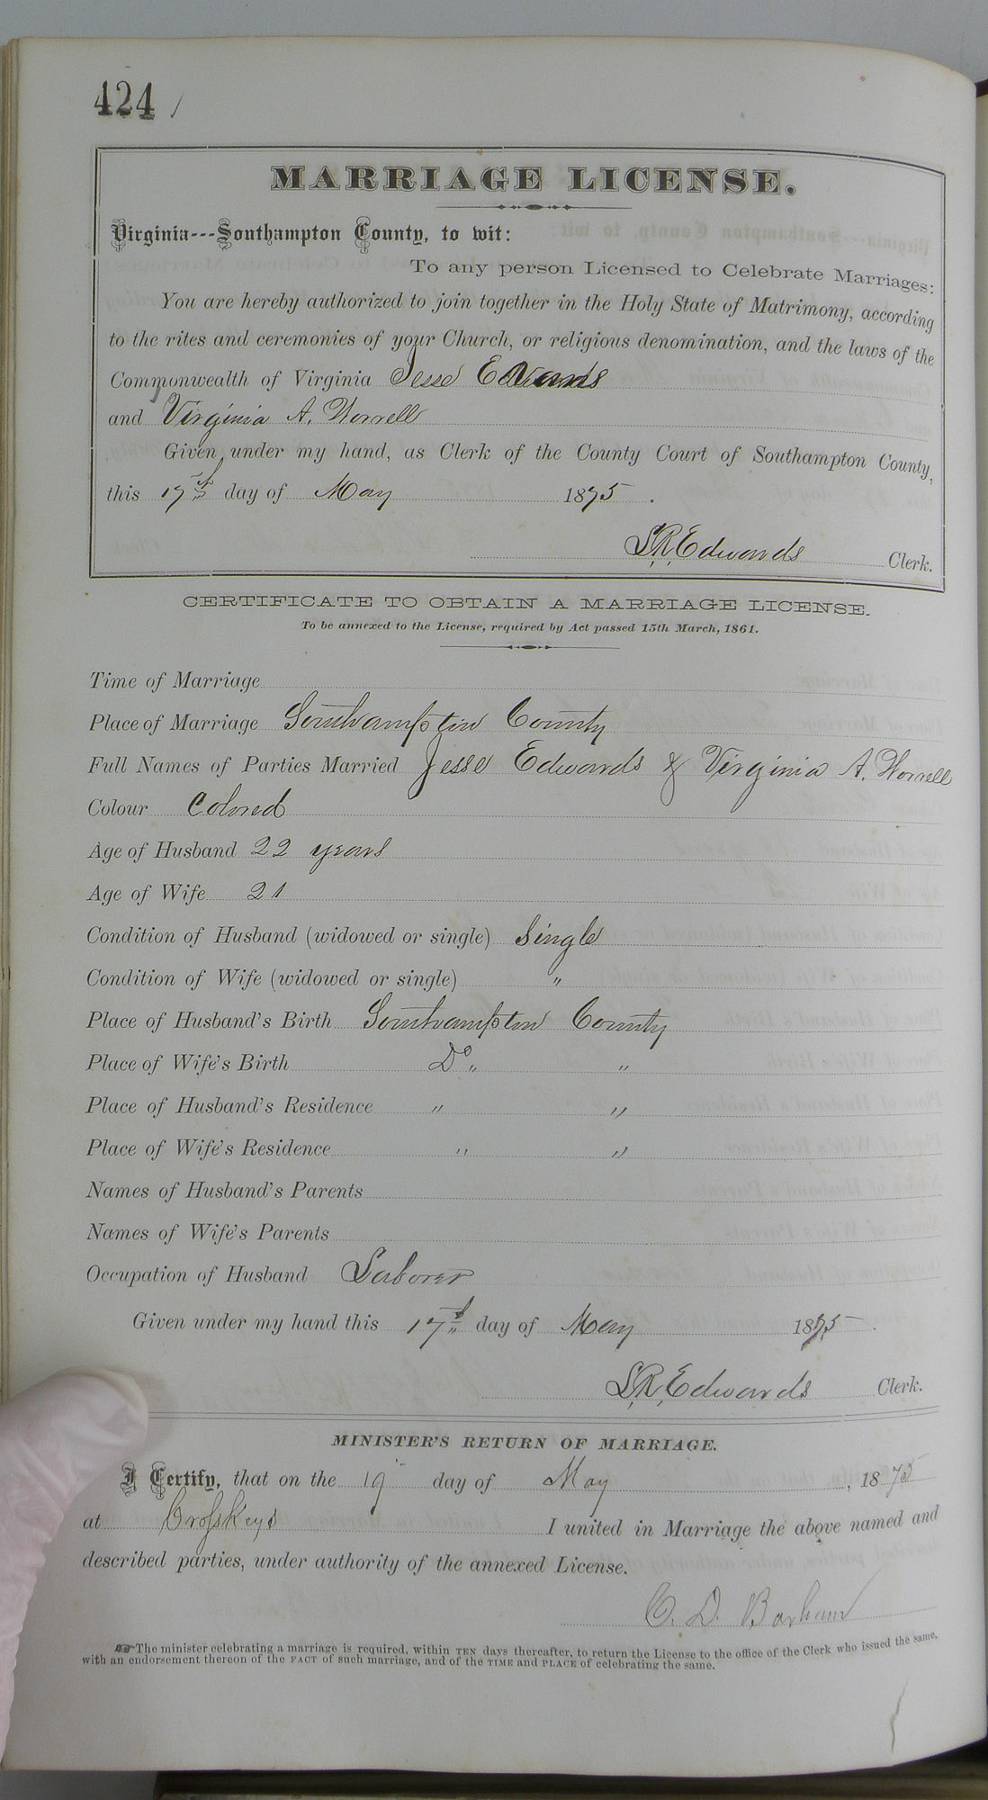 424
MARRIAGE LICENSE.
Virginia---Southampton County, to wit:
To any person Licensed to Celebrate Marriages:
You are hereby authorized to join together in the Holy State of Matrimony, according
to the rites and ceremonies of your Church, or religious denomination, and the laws of the
Commonwealth of Virginia Jesse Edwards
and Virginia A. Worrell
Given under my hand, as Clerk of the County Court of Southampton County,
this 17th day of May 1875.
S.R. Edwards Clerk.
CERTIFICATE TO OBTAIN A MARRIAGE LICENSE.
To be annexed to the License, required by Act passed 15th March, 1861.
Time of Marriage
Place of Marriage Southampton County
Full Names of Parties Married Jesse Edwards & Virginia A. Worrell
Colour Colored
Age of Husband 22 years
Age of Wife 21
Condition of Husband (widowed or single) Single
Condition of Wife (widowed or single) "
Place of Husband's Birth Southampton County
Place of Wife's Birth Do " "
Place of Husband's Residence " "
Place of Wife's Residence " "
Names of Husband's Parents
Names of Wife's Parents
Occupation of Husband Laborer
Given under my hand this 17th day of May 1875.
S.R. Edwards Clerk.
MINISTER'S RETURN OF MARRIAGE.
I Certify, that on the 19 day of May, 1875
at Crosskeys I united in Marriage the above named and
described parties, under authority of the annexed License.
C. D. Barham
The minister celebrating a marriage is required, within TEN days thereafter, to return the License to the office of the Clerk who issued the same,
with an endorsement thereon of the FACT of such marriage, and of the TIME and PLACE of celebrating the same.